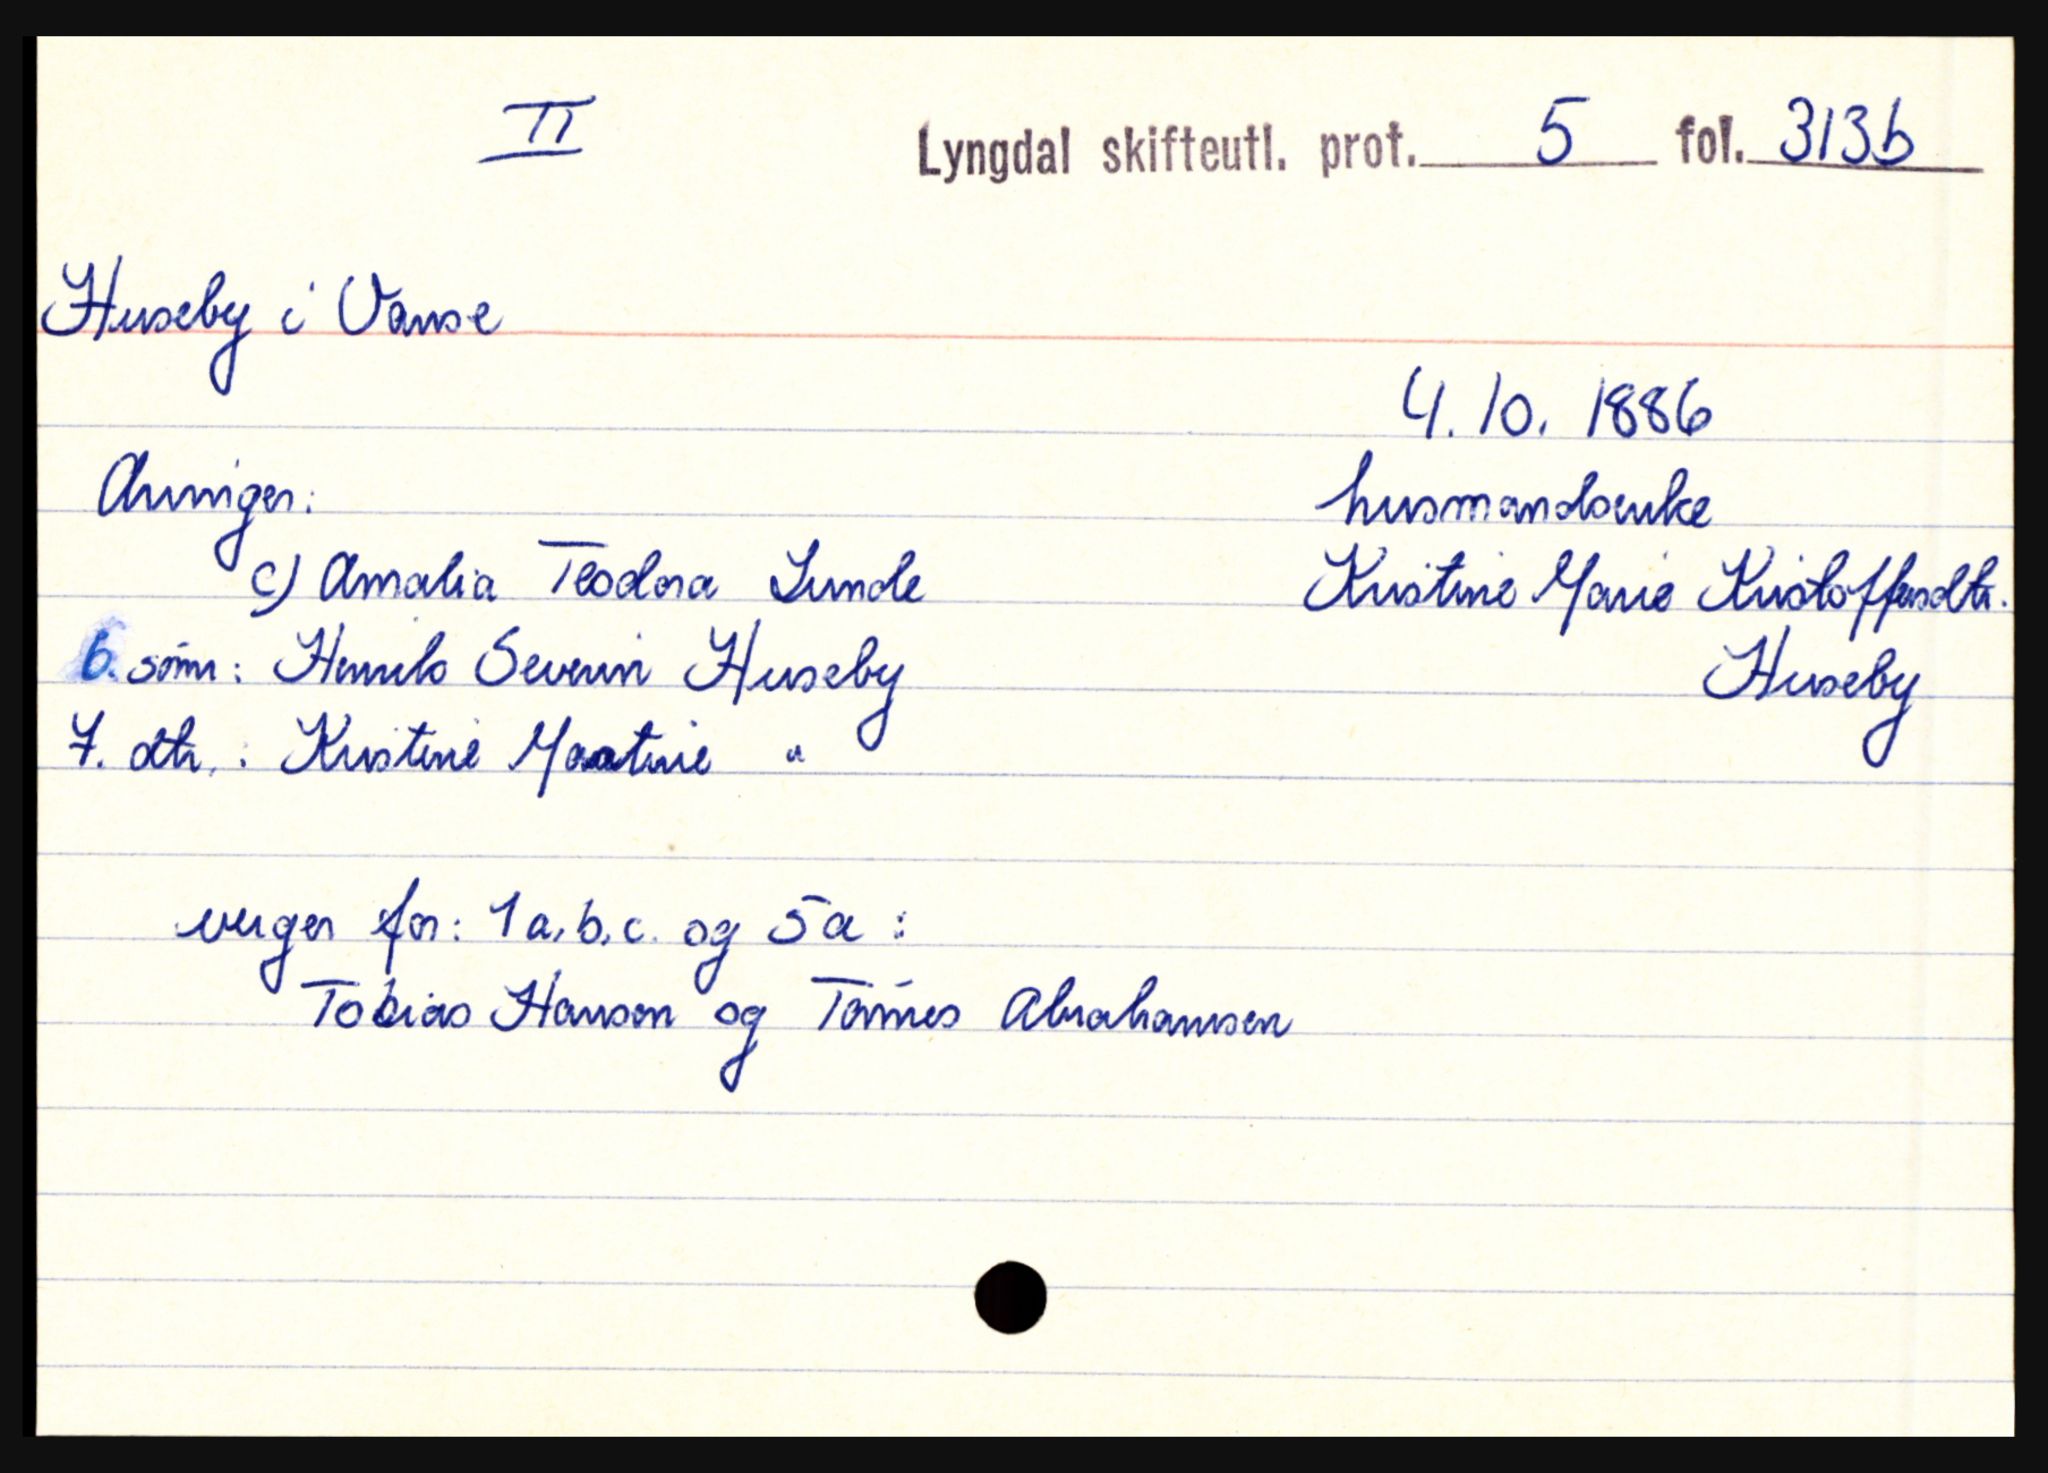 II
Lyngdal skifteutl. prot. 5 fol. 313b
Huseby i Vanse
4. 10. 1886
Arvinger:
husmandsenke
c) Amalia Teodora Lunde
Kristine Marie Kristoffersdtr.
6. sönn: Henrik Severin Huseby
Huseby
7. dtr.: Kristine Martine "
verger for: 1a, b, c. og 5a:
Tobias Hansen og Tönnes Abrahamsen